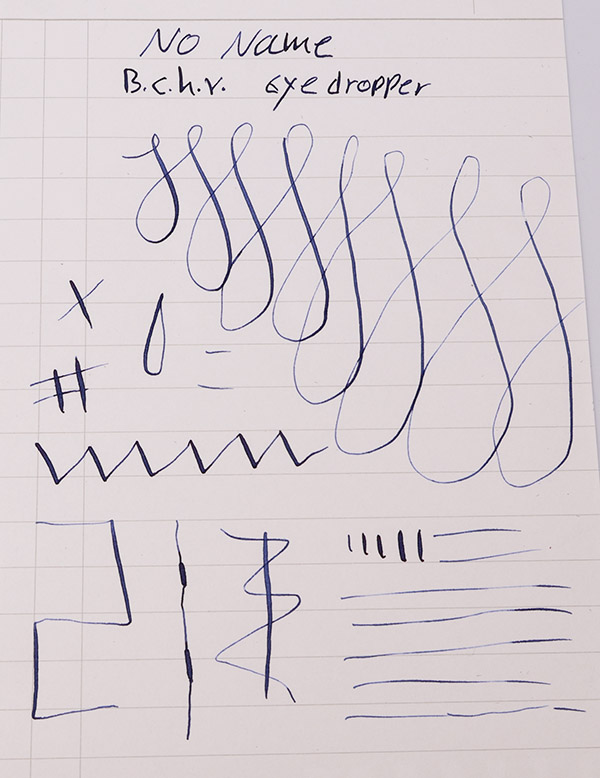 No Name
B.c.h.r. eye dropper